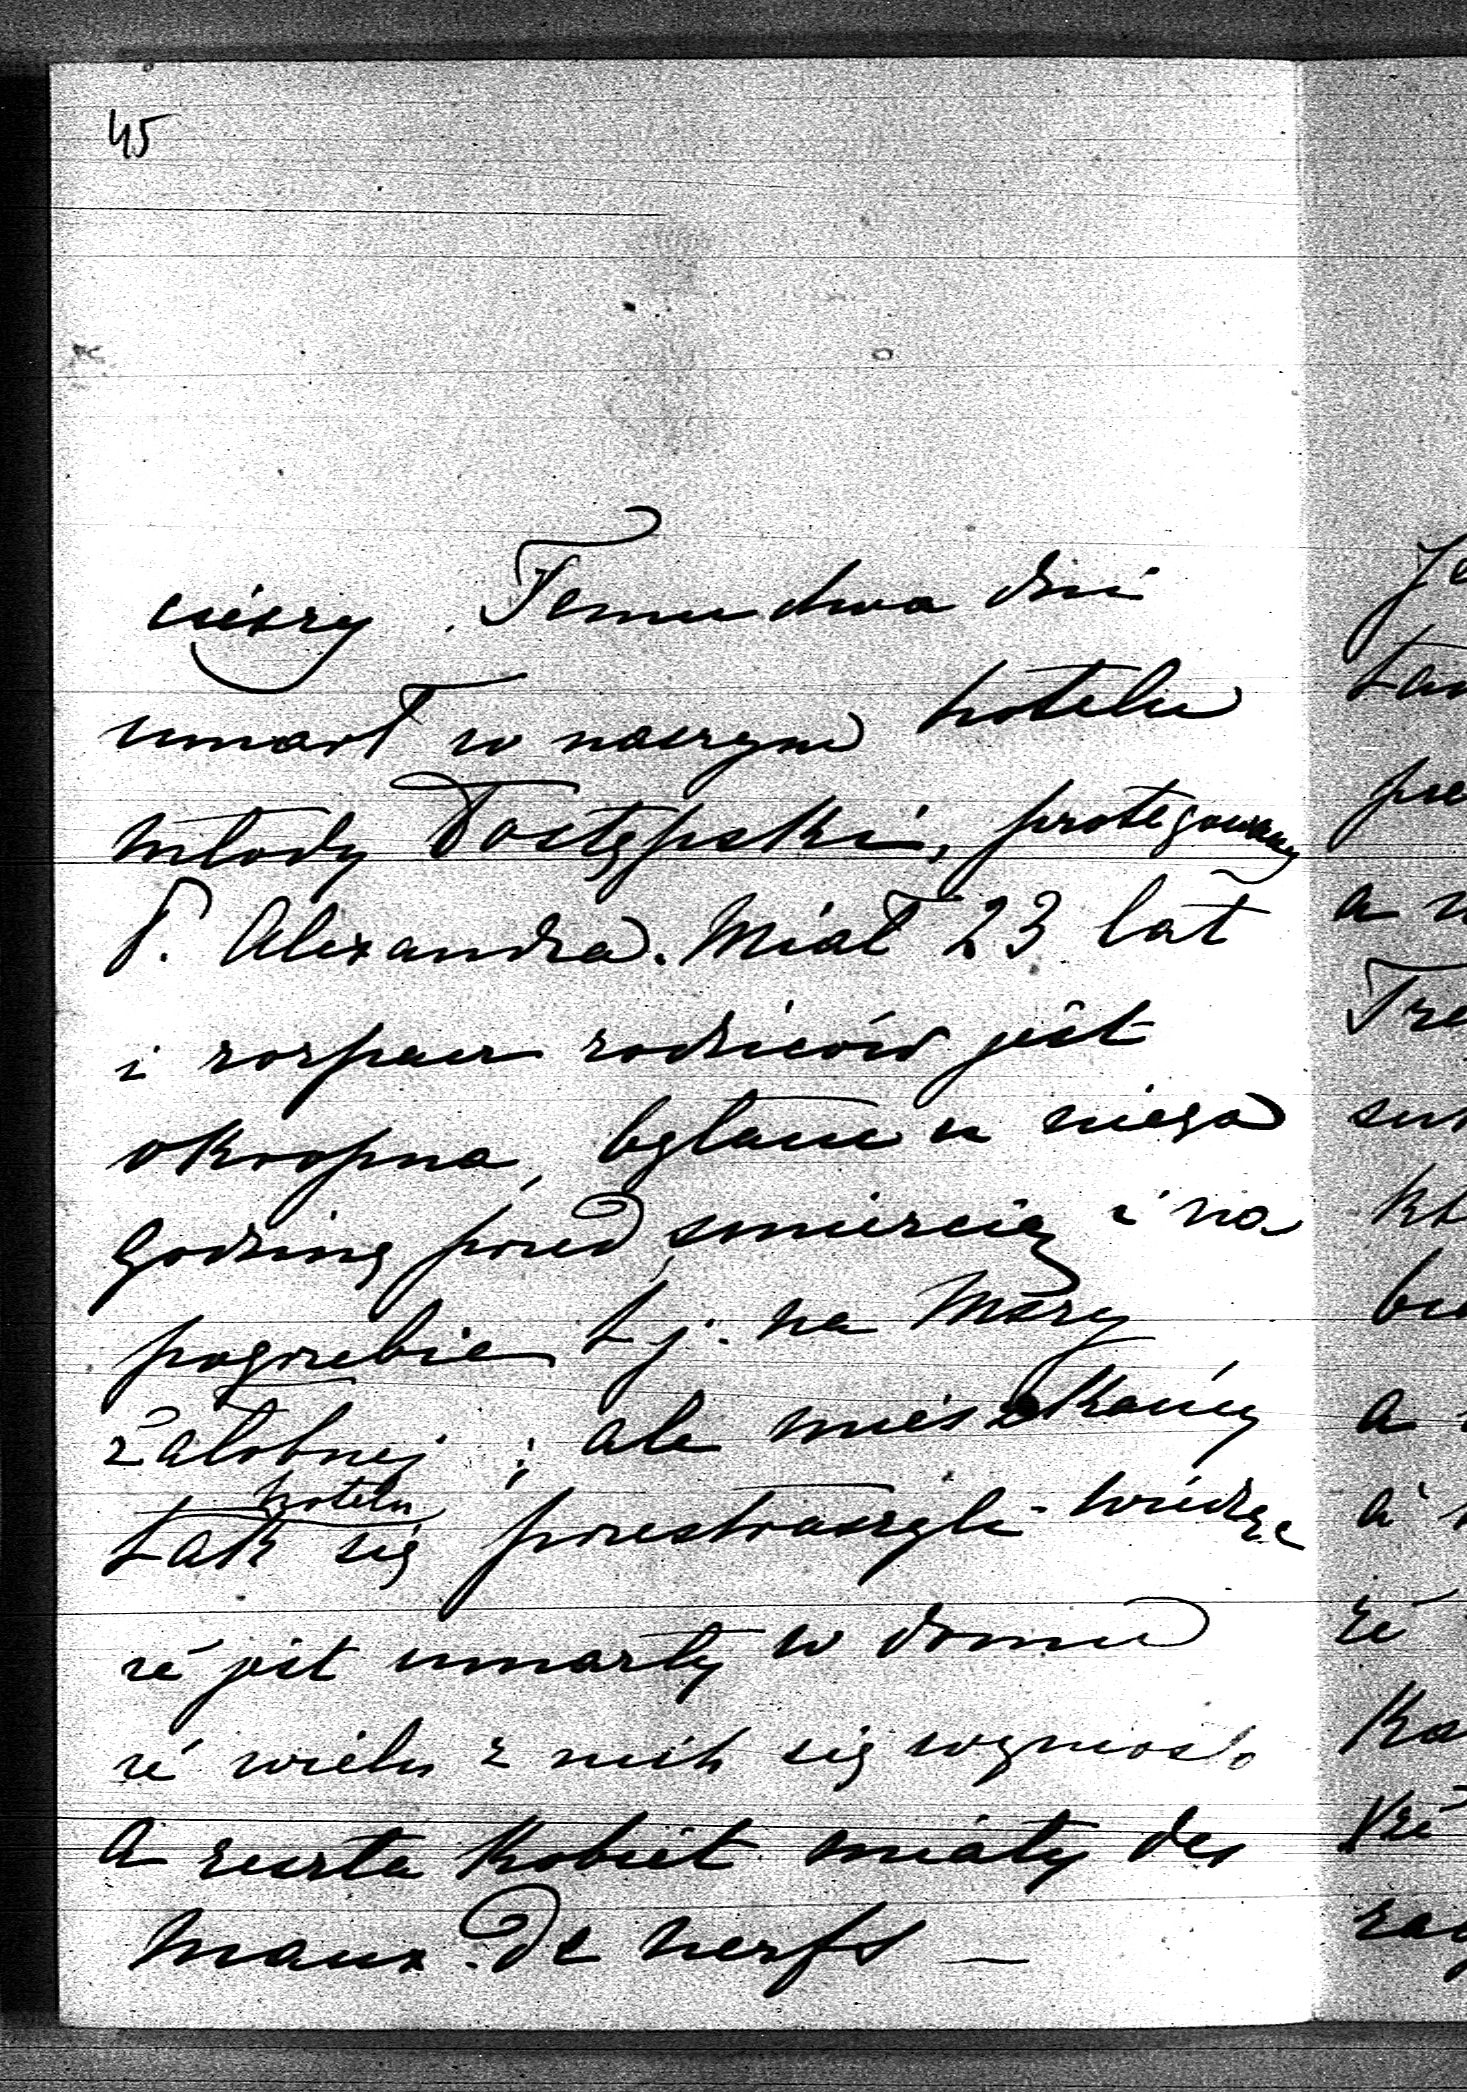 45
cieszy. Temu dwa dni
umarł w naszym hotelu
młody Postępski, protegowany
P. Alexandra. Miał 23 lat
i rozpacz rodziców jest
okropna, byłam u niego
godzinę przed śmiercią i na
pogrzebie t j. na Mszy
żałobnej; ale mieszkańcy
hotelu
tak się przestraszyli widząc
że jest umarły w domu
że wielu z nich się wyniosło
a reszta kobiet miały des
maux de nerfs —
a
że